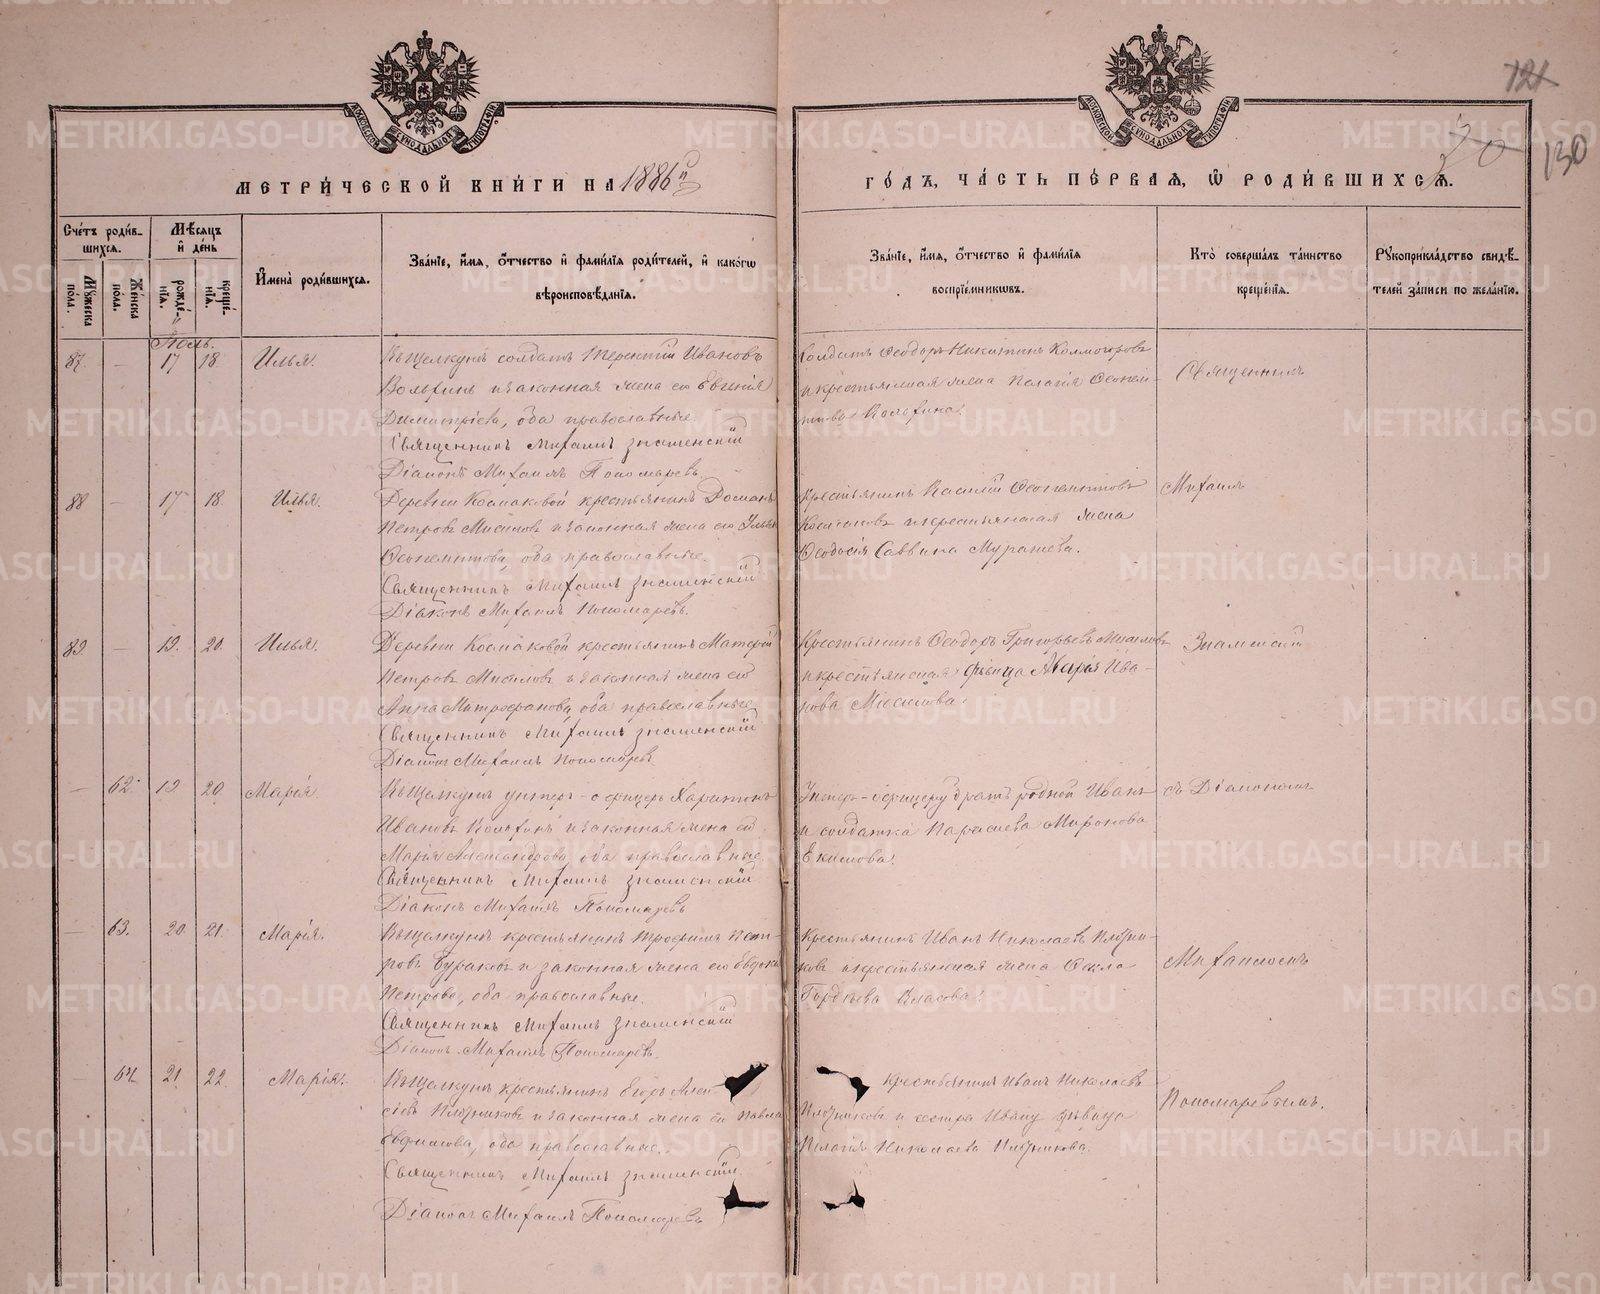 121
30
130
МОСКОВСКОЙ СУНОДАЛЬНОЙ ТИПОГРАФІИ
МОСКОВСКОЙ СУНОДАЛЬНОЙ ТИПОГРАФІИ
МЕТРИ́ЧЕСКОЙ КНИ́ГИ НА 1886й
ГО́ДЪ, ЧА́СТЬ ПЕ́РВАЯ, Ѡ҆ РОДИ́ВШИХСЯ.
Сче́тъ роди́вшихся.
Му́жеска по́ла.
Же́нска по́ла.
Мѣ́сяцъ и҆ де́нь
рожде́нїя.
креще́нїя.
И҆мена̀ роди́вшихся.
Зва́нїе, и҆́мя, ѻ҆́тчество и҆ фами́лїя роди́телей, и҆ како́гѡ
вѣроисповѣ́данїя.
Зва́нїе, и҆́мя, ѻ҆́тчество и҆ фами́лїя
воспрїе́мникѡвъ.
Кто̀ соверша́лъ та́инство
креще́нїя.
Рꙋкоприкла́дство свидѣ́-
телей за́писи по жела́нїю.
Іюль.
87. — 17 18 Илья.
Въ Щелкунѣ солдатъ Терентій Ивановъ
Вольгинъ и законная жена его Евгенія
Димитріева, оба православные.
Священникъ Михаилъ Знаменскій
Діаконъ Михаилъ Пономаревъ.
Солдатъ Ѳеодоръ Никитинъ
и крестьянская жена Пелагія
Священникъ
88 — 17 18. Илья.
Деревни Космаковой крестьянинъ Романъ
Петровъ Мисиловъ и законная жена его
оба православные.
Священникъ Михаилъ Знаменскій
Діаконъ Михаилъ Пономаревъ.
Крестьянинъ Василій
Космаковъ и крестьянская жена
Ѳеодосія Саввина
Михаилъ
89. — 19. 20. Илья.
Деревни Космаковой крестьянинъ
Петровъ Мисиловъ и законная жена его
Анна Митрофанова, оба православные.
Священникъ Михаилъ Знаменскій
Діаконъ Михаилъ Пономаревъ.
Крестьянинъ Ѳеодоръ Григорьевъ Мисиловъ
и крестьянская дѣвица Марія Ива-
нова Мисилова.
Знаменскій
— 62. 19 20. Марія.
Въ Щелкунѣ унтеръ-офицеръ Харитонъ
Ивановъ и законная жена его
Марія Александрова, оба православные.
Священникъ Михаилъ Знаменскій
Діаконъ Михаилъ Пономаревъ
Унтеръ-офицеру братъ родной Иванъ
и солдатка Параскева Миронова
Екимова.
съ Діакономъ
— 63. 20 21. Марія.
Въ Щелкунѣ крестьянинъ Трофимъ Пет-
ровъ Бураковъ и законная жена его
Петрова, оба православные.
Священникъ Михаилъ Знаменскій
Діаконъ Михаилъ Пономаревъ.
Крестьянинъ Иванъ Николаевъ Плотни-
ковъ и крестьянская жена Ѳекла
Гордѣева Власова.
Михаиломъ
— 64. 21. 22. Марія.
Въ Щелкунѣ крестьянинъ Егоръ Алек-
сѣевъ Плотниковъ и законная жена его Павла
Евфимова, оба православные.
Священникъ Михаилъ Знаменскій.
Діаконъ Михаилъ Пономаревъ
Крестьянинъ Иванъ Николаевъ
Плотниковъ и сестра Ивану дѣвица
Пелагія Николаева Плотникова.
Пономаревымъ.
METRIKI.GASO-URAL.RU